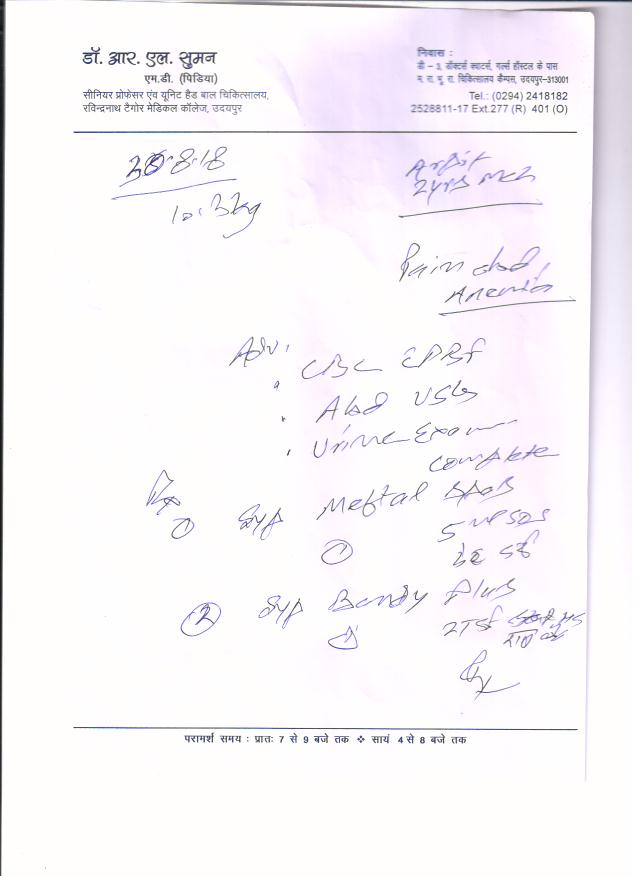 डॉ. आर. एल. सुमन
एम.डी. (पिडिया)
सीनियर प्रोफेसर एंव यूनिट हैड बाल चिकित्सालय,
रविन्द्रनाथ टैगोर मेडिकल कॉलेज, उदयपुर
निवास :
डी – 3, डॉक्टर्स क्वाटर्स, गर्ल्स हॉस्टल के पास
म. रा. भू. रा. चिकित्सालय कैम्पस, उदयपुर-313001
Tel.: (0294) 2418182
2528811-17 Ext.277 (R) 401 (O)
30.8.18
10.3kg
2yrs
Pain abd.
Anemia
Adv.
CBC
Abd USG
Urine Exam
complete
Rx
① Syp Meftal Spas
5 ml SOS
①
② Syp Bandy Plus
①
परामर्श समय : प्रातः 7 से 9 बजे तक ❖ सायं 4 से 8 बजे तक